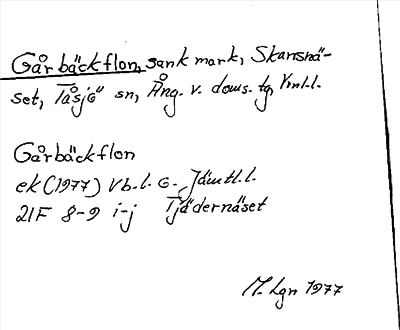 Gårbäckflon, sank mark, Skansnä-
set, Tåsjö sn, Ång. v. doms. tg, Vml.l.
Gårbäckflon
ek (1977) Vb.l. o. Jämtl.l.
21F 8-9 i-j Tjädernäset
M. Lgn 1977